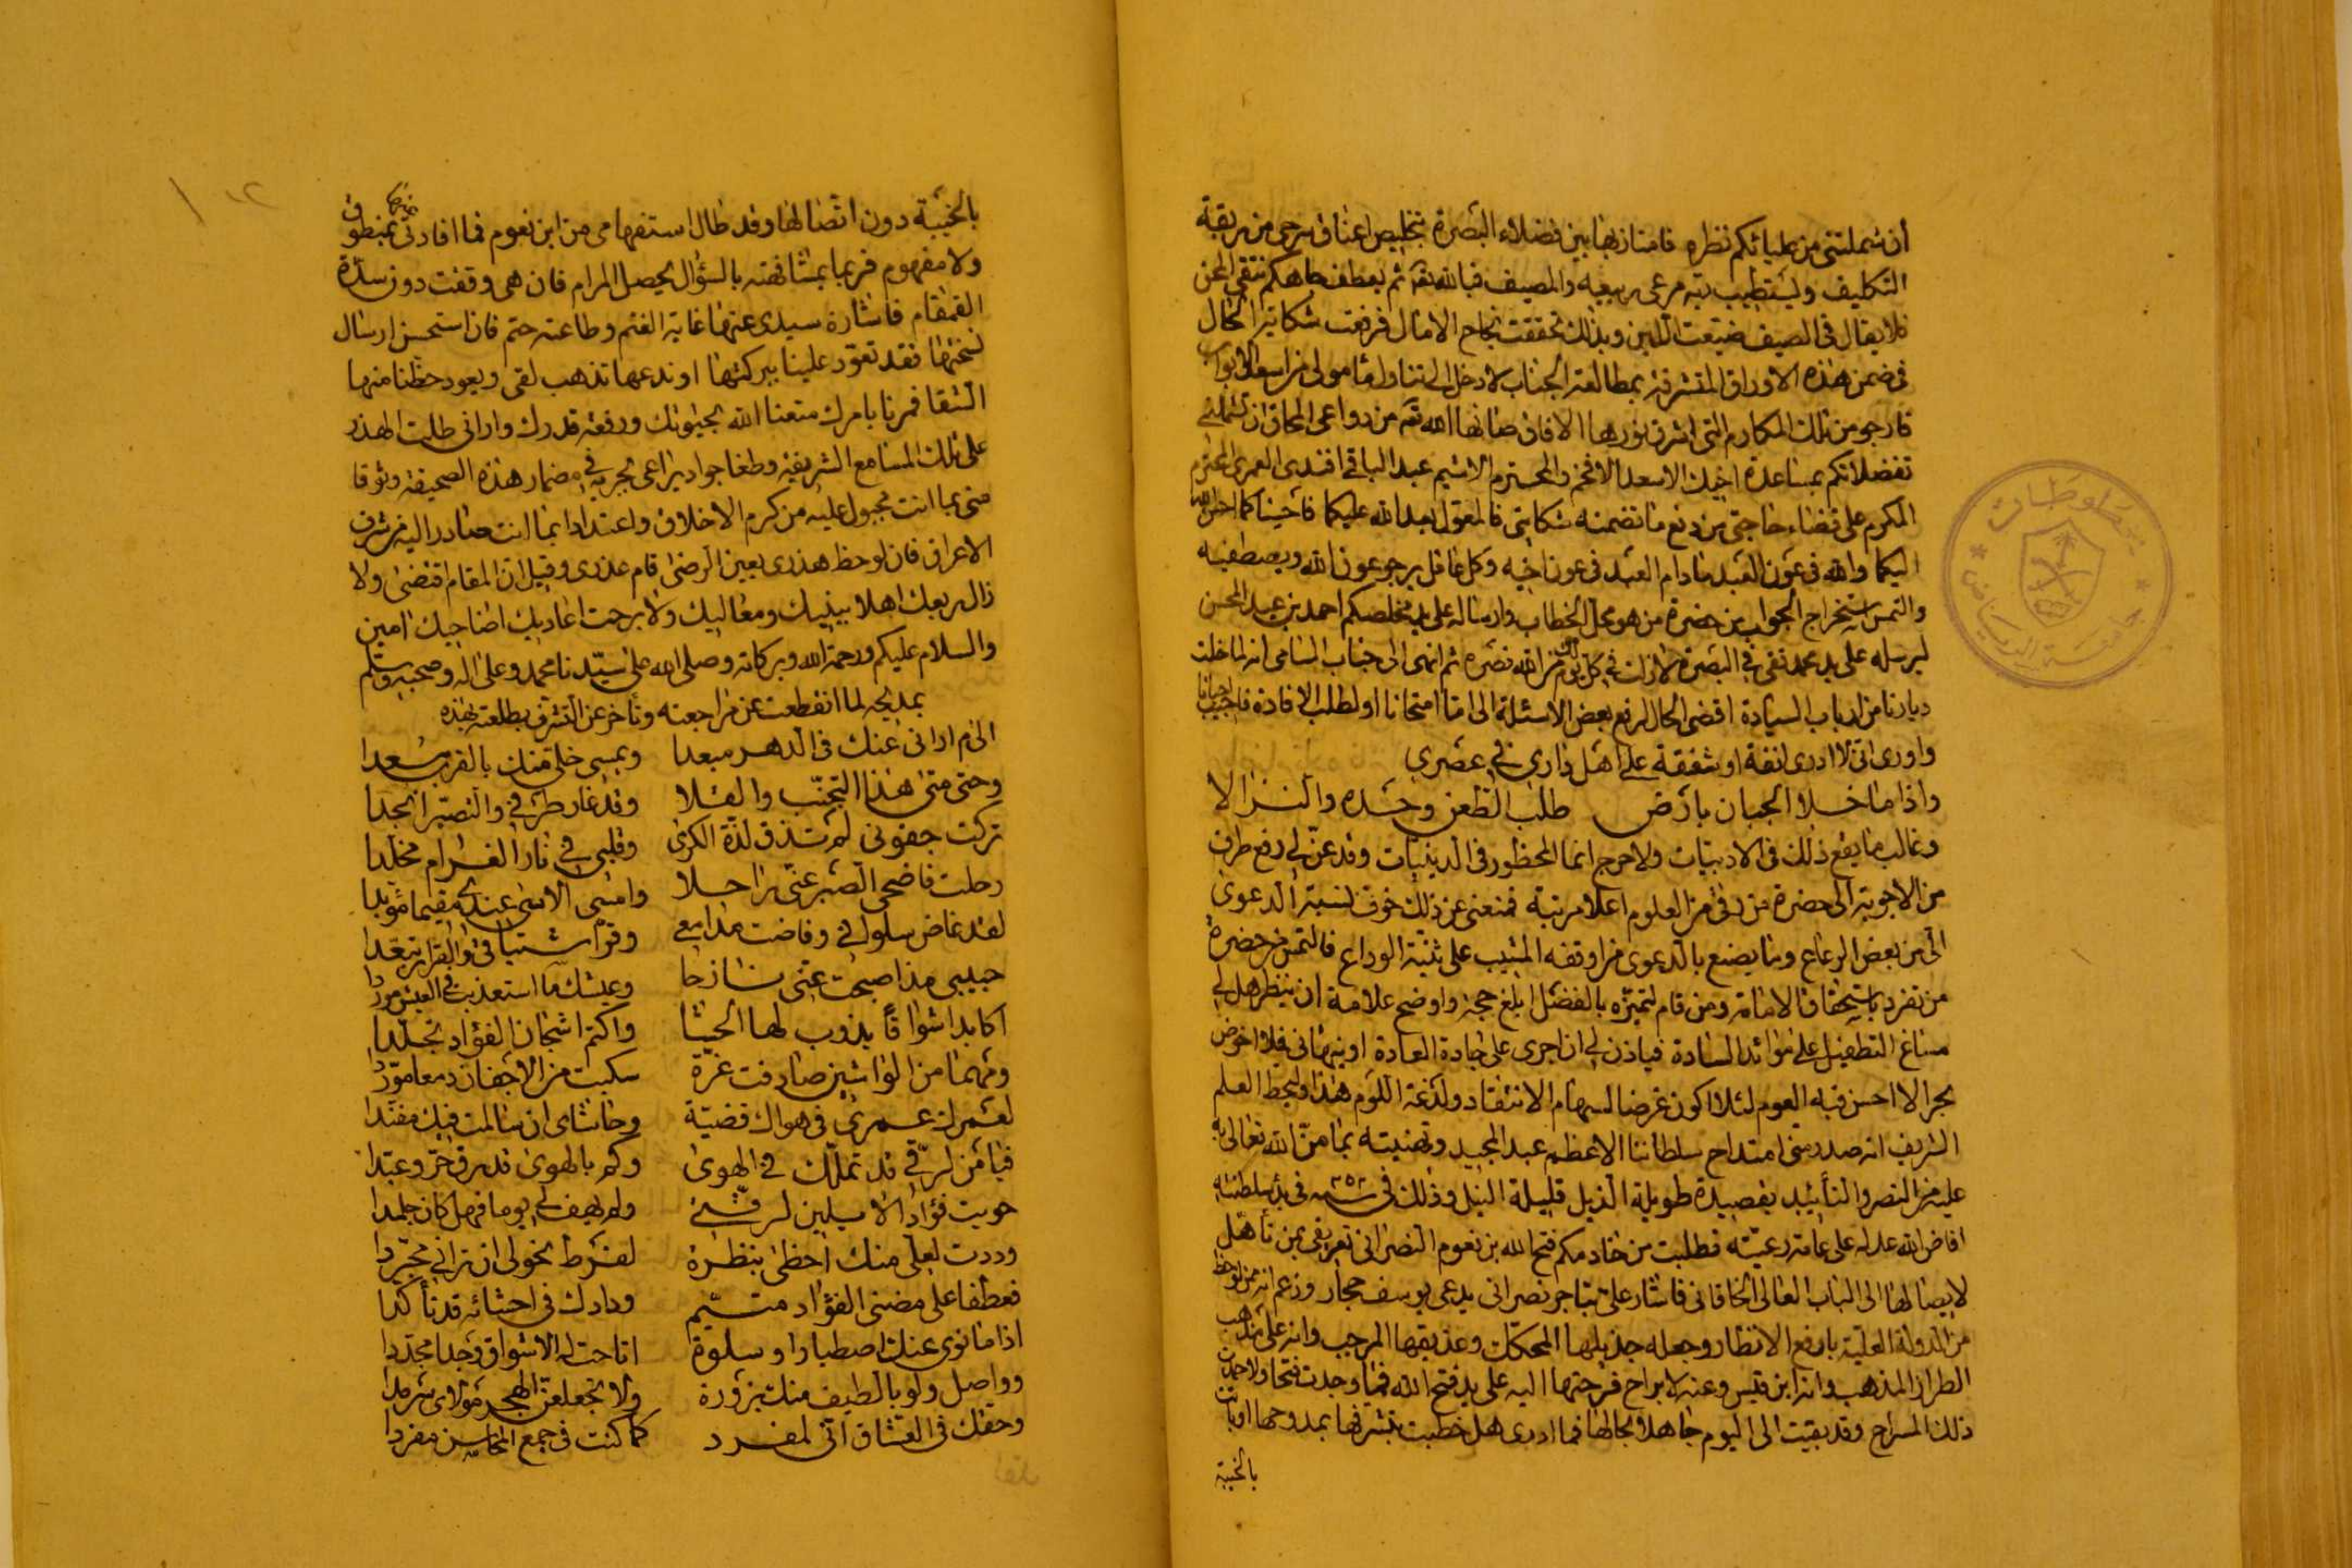 أن شملتني من عليائكم نظره فامتاز بها بين فضلاء البصرة بتخليص اعناق سرحى من ربقة
التكليف ويستطيب به مرعى ربيعيه والمصيف فبالله ثم بعطف جاهكم تنتفى المحن
فلا يقال في الصيف ضيعت اللبن وبذلك تحققت نجاح الامال فرفعت شكاية الحال
في ضمن هذه الاوراق المتشرفة بمطالعة الجناب
فارجو من تلك المكارم التي اشرق نورها الافاق صانها الله تعه من دواعى المحاق ان تشملني
تفضلاتكم بمساعدة اخيك الاسعد الافخم والمحترم الاشيم عبد الباقي افندى العمرى المحترم
المكرم على قضاء حاجتي من دفع ما تضمنه شكايتي فالمعول بعد الله عليكما فاحسنا كما احسن الله
اليكما والله في عون العبد مادام العبد في عون اخيه وكل عاقل يرجو عون الله ويصطفيه
والتمس استخراج الجواب من حضرة من هو محل الخطاب وارساله على يد مخلصكم احمد بن عبد المحسن
ليرسله على يد محمد تقى في البصرة لازلت في كل يوم من الله نصره ثم انهى الى جناب السامى انه لما خلت
ديارنا من ارباب السيادة اقضى الحال لرفع بعض الاسئلة الى اما امتحانا او لطلب الافادة فاجيب احيانا
واورى اني لا ادرى انفة او شفقة على اهل دارى في عصري
واذا ما خلا الجبان بارض طلب الطعن وحده والنزالا
وغالب ما يقع ذلك في الادبيات ولا حرج انما المحظور في الدينيات وقد عن لي رفع طرف
من الاجوبة الى حضرة من رقى من العلوم اعلا مرتبة فمنعنى عن ذلك خوف نسبة الدعوى
الى من بعض الرعاع وما يصنع بالدعوى من اوقفه المشيب على ثنية الوداع فالتمس من حضرة
من تفرد باستحقاق الامامة ومن قام لتميزه بالفضل ابلغ حجة واوضح علامة ان ينظر هل لي
مساغ التطفيل على موائد السادة فياذن لي ان اجرى على جادة العادة او ينهانى فلا اخوض
بحر الا احسن فيه العوم لئلا اكون غرضا لسهام الانتقاد ولدغة اللوم هذا وليحط العلم
الشريف انه صدر منى امتداح سلطاننا الاعظم عبد المجيد وتهنيته بما من الله تعالى به
عليه من النصر والتأييد بقصيدة طويلة الذيل قليلة النيل وذلك في سنه في بدؤ سلطنته
افاض الله عدله على عامة رعيته فطلبت من خادمكم فتح الله بن نعوم النصرانى تعريفى بمن تأهل
لايصالها الى الباب العالى الخاقانى فاشار على بتاجر نصرانى يدعى يوسف حجار وزعم انه ممن لوحظ
من الدولة العلية بارفع الانظار وجعله جذيلها المحكك وعذيقها المرجب وانه على مذهب
الطراز المذهب وانه ابن قيس وعنه لا براح فزجتها اليه على يد فتح الله فما وجدت فتحا ولا حمدت
ذلك المسراح وقد بقيت الى اليوم جاهلا بحالها فما ادرى هل حظيت بتشرفها بممدوحها او باتت
بالخيبة
بالخيبة دون اتصالها وقد طال استفهامى من ابن نعوم فما افادنى بمنطوق
ولا مفهوم فربما بمشافهته بالسؤال يحصل المرام فان هى وقفت دون سدة
القمقام فاشارة سيدى عنها غاية الغنم وطاعته حتم فان استحسن ارسال
نسختها فقد تعود علينا بركتها او ندعها تذهب لقى ويعود حظنا منها
الشقا فمرنا بامرك متعنا الله بحيوتك ورفعة قدرك وارانى طلبت الهذر
على تلك المسامع الشريفة وطغا جواد يراعى بجريه في مضمار هذه الصحيفة وثوقا
منى بما انت مجبول عليه من كرم الاخلاق واعتدادا بما انت صادر اليه من شرف
الاعراق فان لوحظ هذرى بعين الرضى قام عذرى وقيل ان المقام اقتضى ولا
زال ربعك اهلا ببنيك ومعاليك ولا برحت اعاديك اضاحيك امين
والسلام عليكم ورحمة الله وبركاته وصلى الله على سيدنا محمد وعلى اله وصحبه وسلم
بمديحه لما انقطعت عن مراجعته وتأخر عن التشرف بطلعته بهذه
الى م ارانى عنك في الدهر مبعدا ويمسى خلى منك بالقرب مسعدا
وحتى متى هذا التجنب والقلا وقد غار طرفي والتصبر انجدا
تركت جفونى لم تذق لذة الكرى وقلبى في نار الغرام مخلدا
رحلت فاضحى الصبر عنى راحلا وامسى الاسى عندى مقيما مؤبدا
لقد غاض سلوانى وفاضت مدامعي وقر اشتياقى والقرار تبعدا
حبيبى مذ اصبحت عنى نازحا وعيشك ما استعذبت في العيش موردا
اكابد اشواقا يذوب لها الحشا واكتم اشجان الفؤاد تجلدا
ومهما من الواشين صادفت غرة سكبت من الاجفان دمعا موردا
لعمرك عمرى في هواك قضيته وحاشاى ان سالمت فيك مفندا
فيا من لرقى قد تملك في الهوى وكم بالهوى قد رق حر وعبدا
حويت فؤادا لا يلين لرقتي ولم يهف لي يوما فهل كان جلمدا
وددت لعلى منك احظى بنظرة لفرط نحولى ان ترانى مجردا
فعطفا على مضنى الفؤاد متيم ودادك في احشائه قد تأكدا
اذا ما نوى عنك اصطبارا وسلوة اتاحت له الاشواق وجدا مجددا
وواصل ولو بالطيف منك بزورة ولا تجعلن الهجر مولاى سرمدا
وحقك في العشاق انى لمفرد كما كنت في جمع المحاسن مفردا
مخطوطات
جامعة الرياض